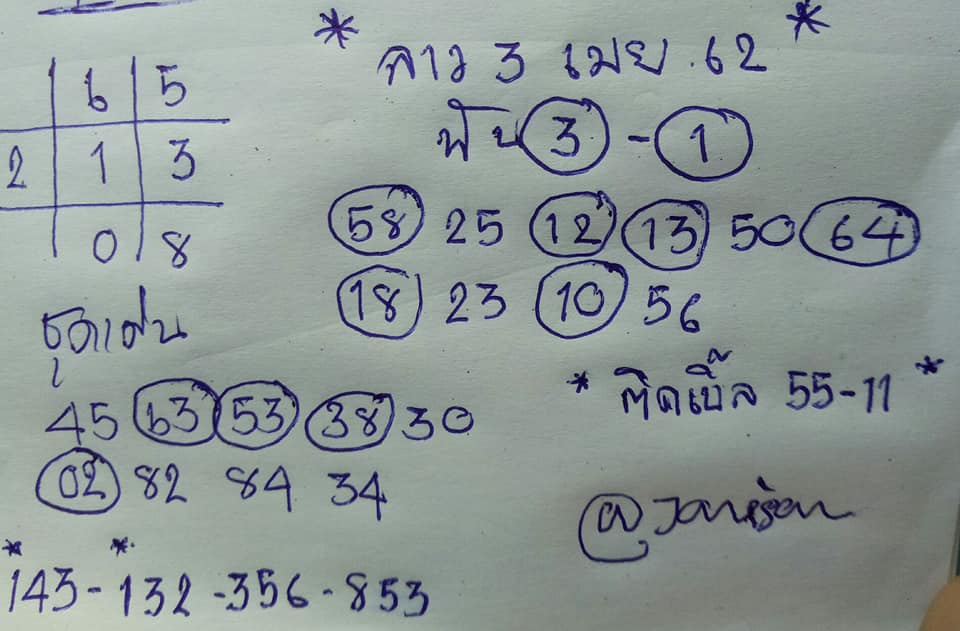 * ลาว 3 เมย. 62 *
ฟัน 3 - 1
6 5
2 1 3
0 8
58 25 12 13 50 64
18 23 10 56
ชุดเด่น
45 63 53 38 30
02 82 84 34
* ติดเบิ้ล 55-11 *
143 - 132 - 356 - 853